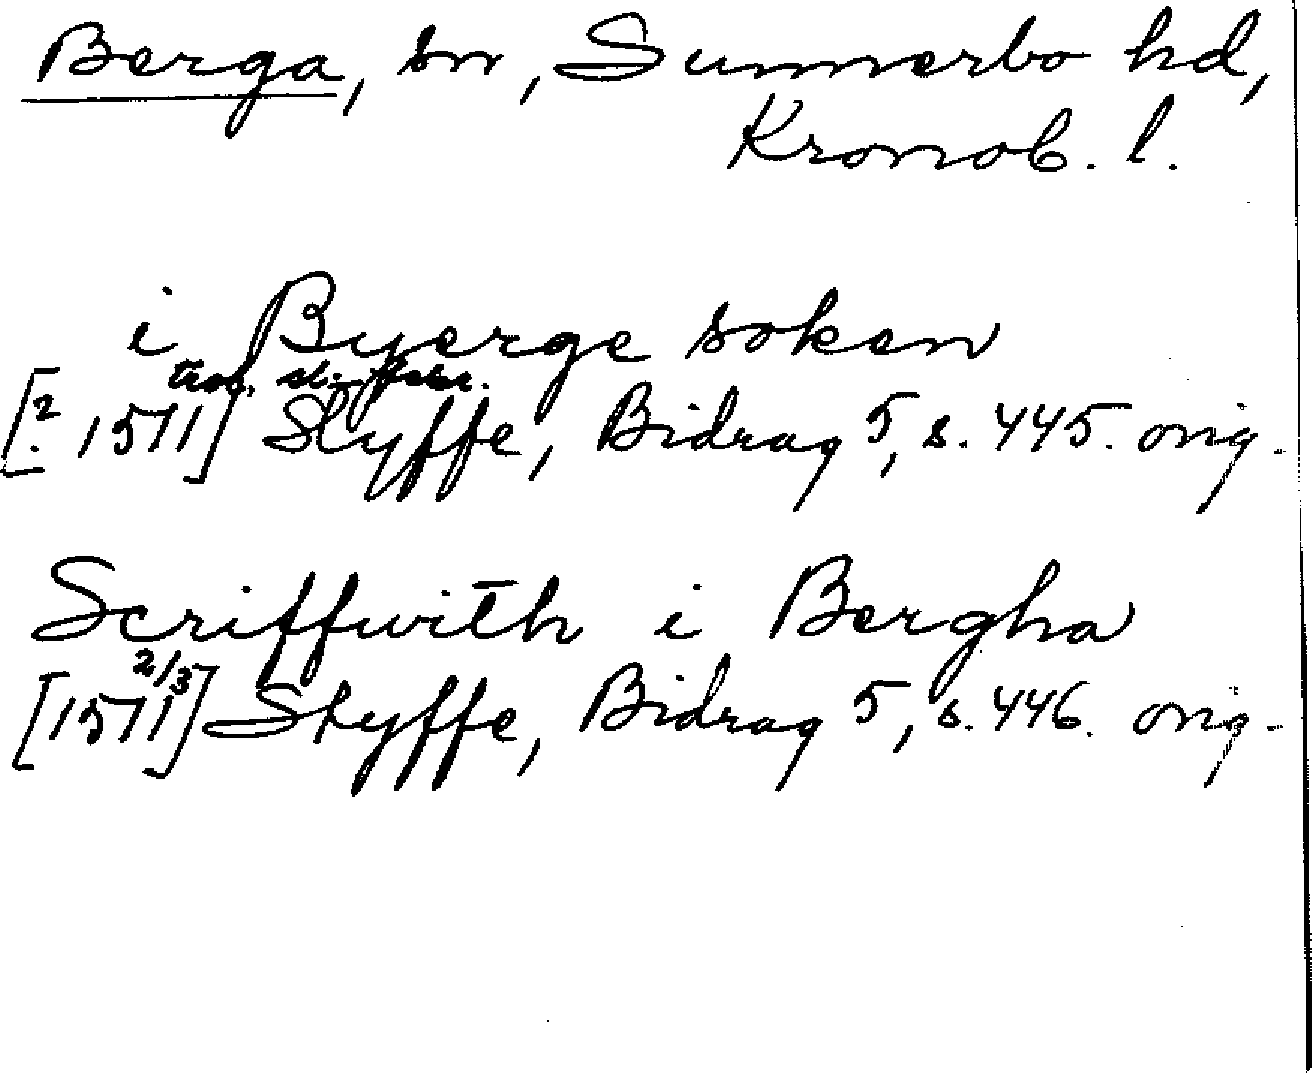 Berga, sn, Sunnerbo hd,
Kronob. l.
i Byerge soken
trol. sl. febr.
[? 1511] Styffe, Bidrag 5, s. 445. orig.
Scriffwith i Bergha
[1511 2/3] Styffe, Bidrag 5, s. 446. orig.